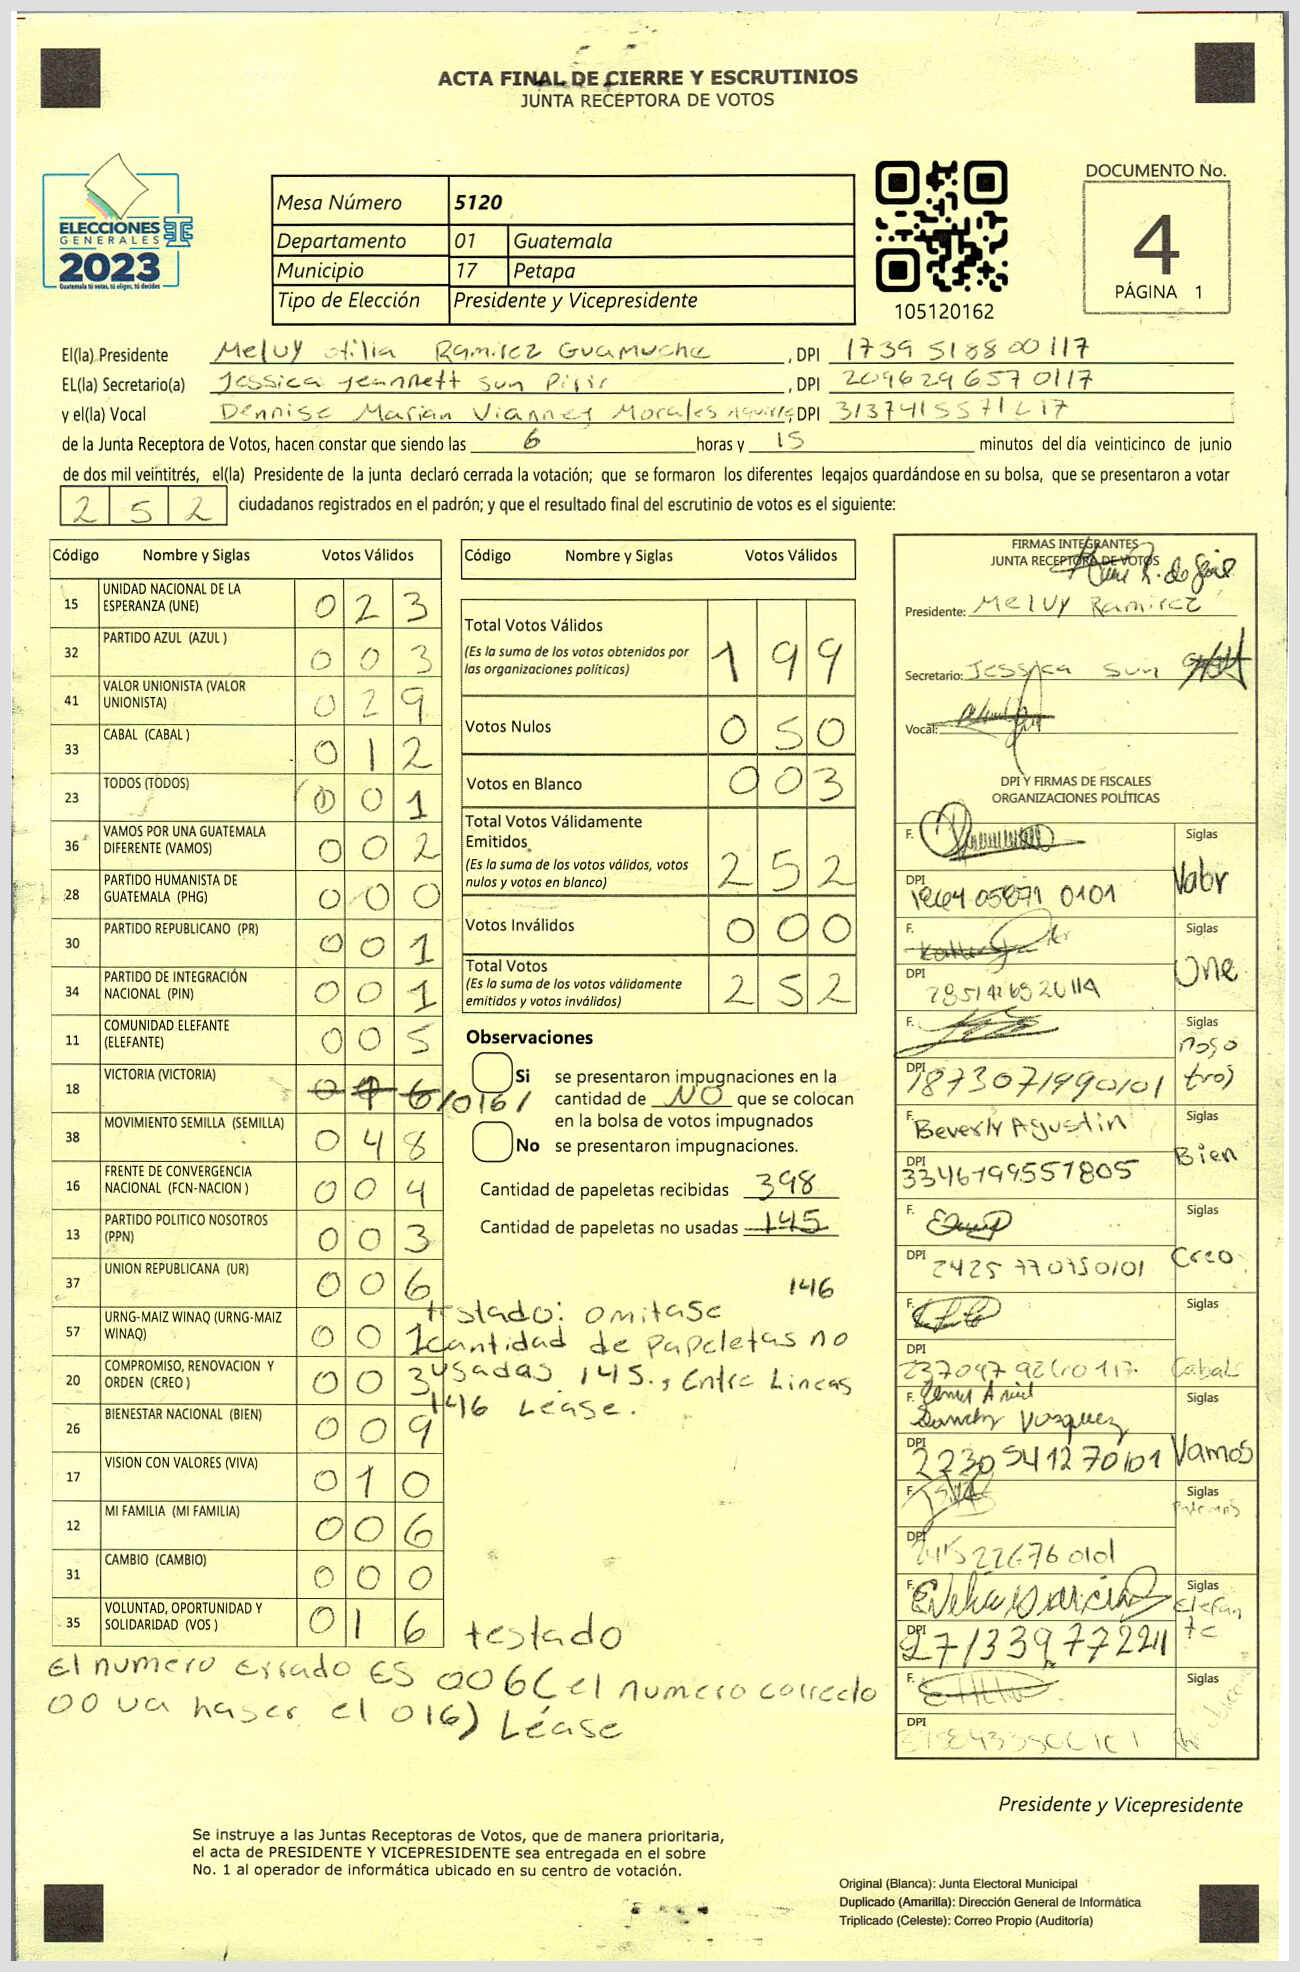 ACTA FINAL DE CIERRE Y ESCRUTINIOS
JUNTA RECEPTORA DE VOTOS
ELECCIONES
GENERALES
2023
Guatemala tú votas, tú eliges, tú decides
Mesa Número 5120
Departamento 01 Guatemala
Municipio 17 Petapa
Tipo de Elección Presidente y Vicepresidente
105120162
DOCUMENTO No.
4
PÁGINA 1
El(la) Presidente Meluy otilia Ramirez Guamuche, DPI 1739 51880 0117
EL(la) Secretario(a) Jessica Jeannett Sun Pirir, DPI 2096296570117
y el(la) Vocal Dennise Marian Vianney Morales Aguirre, DPI
de la Junta Receptora de Votos, hacen constar que siendo las 6 horas y 15 minutos del día veinticinco de junio
de dos mil veintitrés, el(la) Presidente de la junta declaró cerrada la votación; que se formaron los diferentes legajos quardándose en su bolsa, que se presentaron a votar
252 ciudadanos registrados en el padrón; y que el resultado final del escrutinio de votos es el siguiente:
Código Nombre y Siglas Votos Válidos
15 UNIDAD NACIONAL DE LA ESPERANZA (UNE) 0 2 3
32 PARTIDO AZUL (AZUL ) 0 0 3
41 VALOR UNIONISTA (VALOR UNIONISTA) 0 2 9
33 CABAL (CABAL ) 0 1 2
23 TODOS (TODOS) 0 0 1
36 VAMOS POR UNA GUATEMALA DIFERENTE (VAMOS) 0 0 2
28 PARTIDO HUMANISTA DE GUATEMALA (PHG) 0 0 0
30 PARTIDO REPUBLICANO (PR) 0 0 1
34 PARTIDO DE INTEGRACIÓN NACIONAL (PIN) 0 0 1
11 COMUNIDAD ELEFANTE (ELEFANTE) 0 0 5
18 VICTORIA (VICTORIA) /016/
38 MOVIMIENTO SEMILLA (SEMILLA) 0 4 8
16 FRENTE DE CONVERGENCIA NACIONAL (FCN-NACION ) 0 0 4
13 PARTIDO POLITICO NOSOTROS (PPN) 0 0 3
37 UNION REPUBLICANA (UR) 0 0 6
57 URNG-MAIZ WINAQ (URNG-MAIZ WINAQ) 0 0 1
20 COMPROMISO, RENOVACION Y ORDEN (CREO ) 0 0 3
26 BIENESTAR NACIONAL (BIEN) 0 0 9
17 VISION CON VALORES (VIVA) 0 1 0
12 MI FAMILIA (MI FAMILIA) 0 0 6
31 CAMBIO (CAMBIO) 0 0 0
35 VOLUNTAD, OPORTUNIDAD Y SOLIDARIDAD (VOS ) 0 1 6
testado
El numero errado ES 006( el numero correcto
00 va haser el 016) Léase
Código Nombre y Siglas Votos Válidos
Total Votos Válidos 1 9 9
(Es la suma de los votos obtenidos por
las organizaciones políticas)
Votos Nulos 0 5 0
Votos en Blanco 0 0 3
Total Votos Válidamente
Emitidos 2 5 2
(Es la suma de los votos válidos, votos
nulos y votos en blanco)
Votos Inválidos 0 0 0
Total Votos 2 5 2
(Es la suma de los votos válidamente
emitidos y votos inválidos)
Observaciones
Si se presentaron impugnaciones en la
cantidad de NO que se colocan
en la bolsa de votos impugnados
No se presentaron impugnaciones.
Cantidad de papeletas recibidas 398
Cantidad de papeletas no usadas 145
146
testado: omitase
cantidad de papeletas no
usadas 145., Entre Lineas
146 Léase.
FIRMAS INTEGRANTES
JUNTA RECEPTORA DE VOTOS
Presidente: Meluy Ramirez
Secretario: Jessica Sun
Vocal:
DPI Y FIRMAS DE FISCALES
ORGANIZACIONES POLÍTICAS
F. Siglas Valor
DPI
F. Siglas Une
DPI
F. Siglas nosotros
DPI 1873071990101
F. Beverly Agustin Siglas Bien
DPI 3346199551805
F. Siglas Creo
DPI 2425 770750101
F. Siglas Cabal
DPI
F. Siglas Vamos
DPI 2230541270101
F. Siglas
DPI
F. Siglas Elefante
DPI
F. Siglas
DPI
Presidente y Vicepresidente
Se instruye a las Juntas Receptoras de Votos, que de manera prioritaria,
el acta de PRESIDENTE Y VICEPRESIDENTE sea entregada en el sobre
No. 1 al operador de informática ubicado en su centro de votación.
Original (Blanca): Junta Electoral Municipal
Duplicado (Amarilla): Dirección General de Informática
Triplicado (Celeste): Correo Propio (Auditoría)